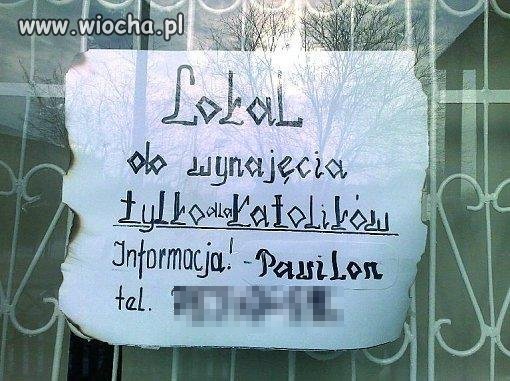 www.wiocha.pl
Lokal
do wynajęcia
tylko dla Katolików
Informacja! - Pawilon
tel.